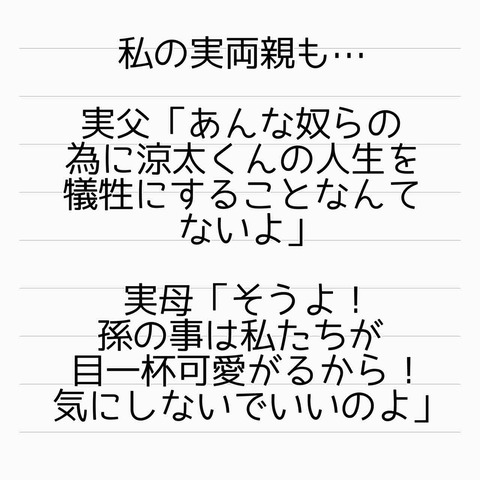 私の実両親も…
実父「あんな奴らの
為に涼太くんの人生を
犠牲にすることなんて
ないよ」
実母「そうよ！
孫の事は私たちが
目一杯可愛がるから！
気にしないでいいのよ」